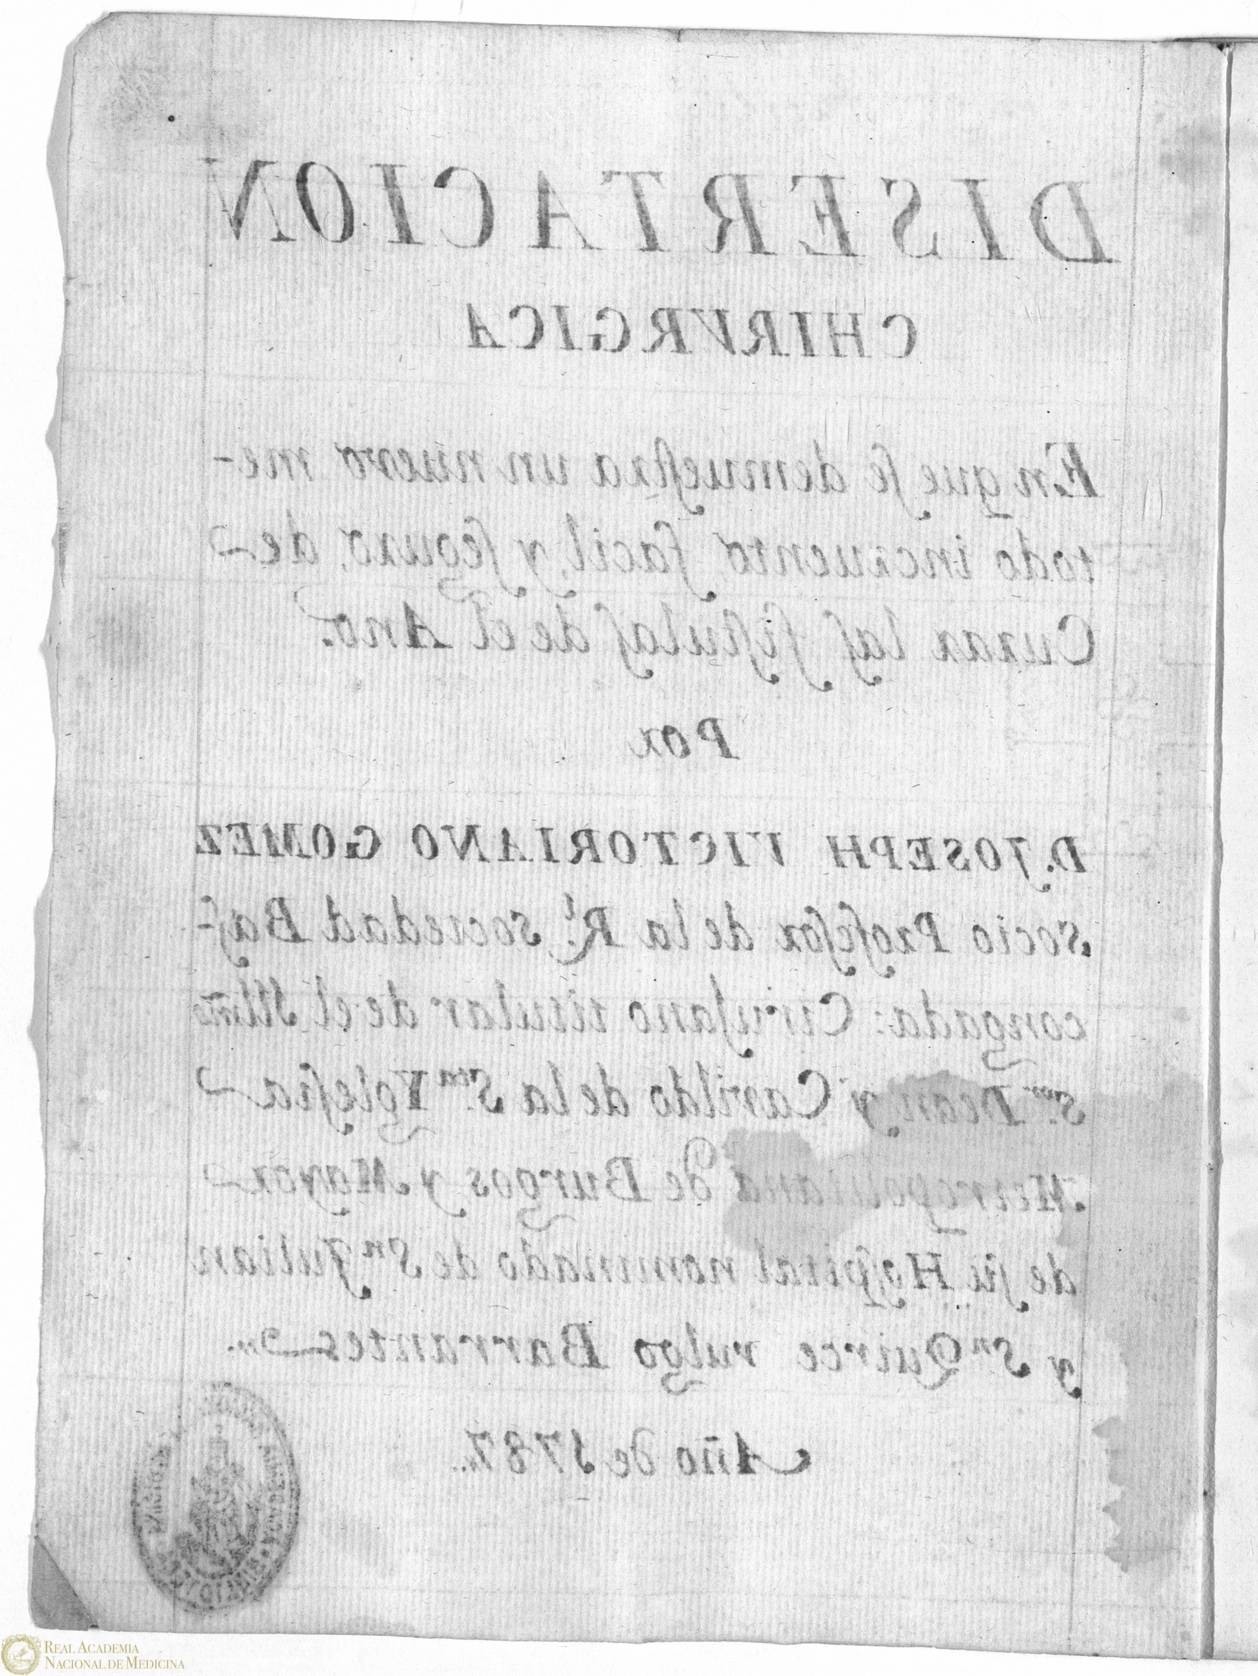 DISERTACION
CHIRVRGICA
En que ſe demueſtra un nuevo me-
todo incruento, facil, y ſeguro, de
Curar laſ fiſtulaſ de el Ano.
Por
D. JOSEPH VICTORIANO GOMEZ
Socio Profeſor de la Rl. Sociedad Baſ-
congada: Ciruſano titular de el Illmo
Sor. Dean, y Cavildo de la Sta. Ygleſia
Metropolitana de Burgos y Mayor
de ſu Hoſpital nominado de Sn Julian
y Sn Quirce vulgo Barrantes
Año de 1787
REAL ACADEMIA
NACIONAL DE MEDICINA